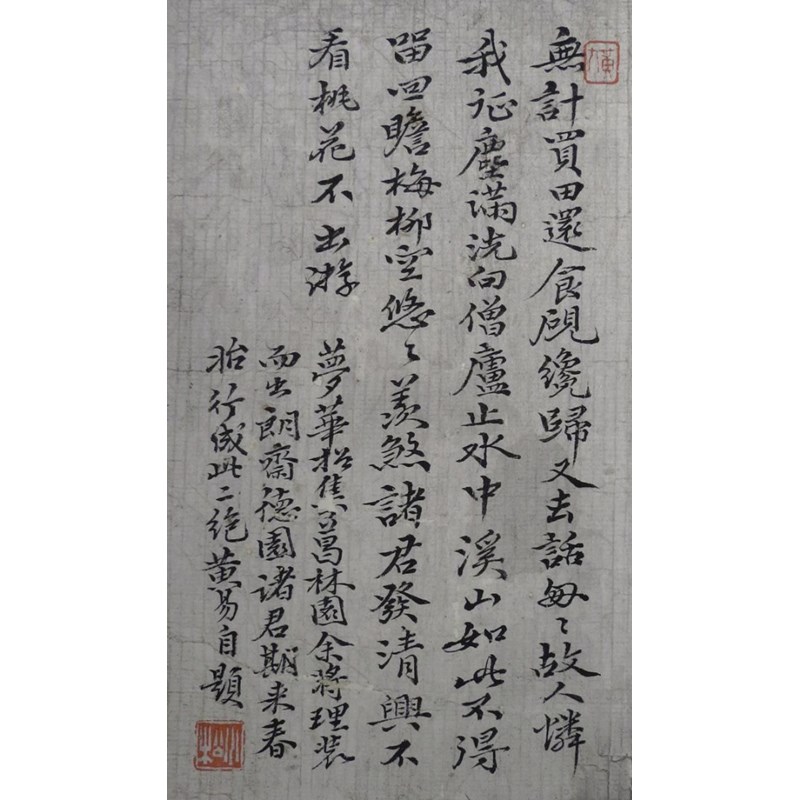 無計買田還食硯纔歸又去話匆〻故人憐
我征塵滿洗向僧廬止水中溪山如此不得
留回瞻梅柳空悠〻羨煞諸君發清興不
看桃花不出游
夢華招集葛林園余將理裝
而出朗齋德園諸君期来春
行成此二絶黄易自題
小松